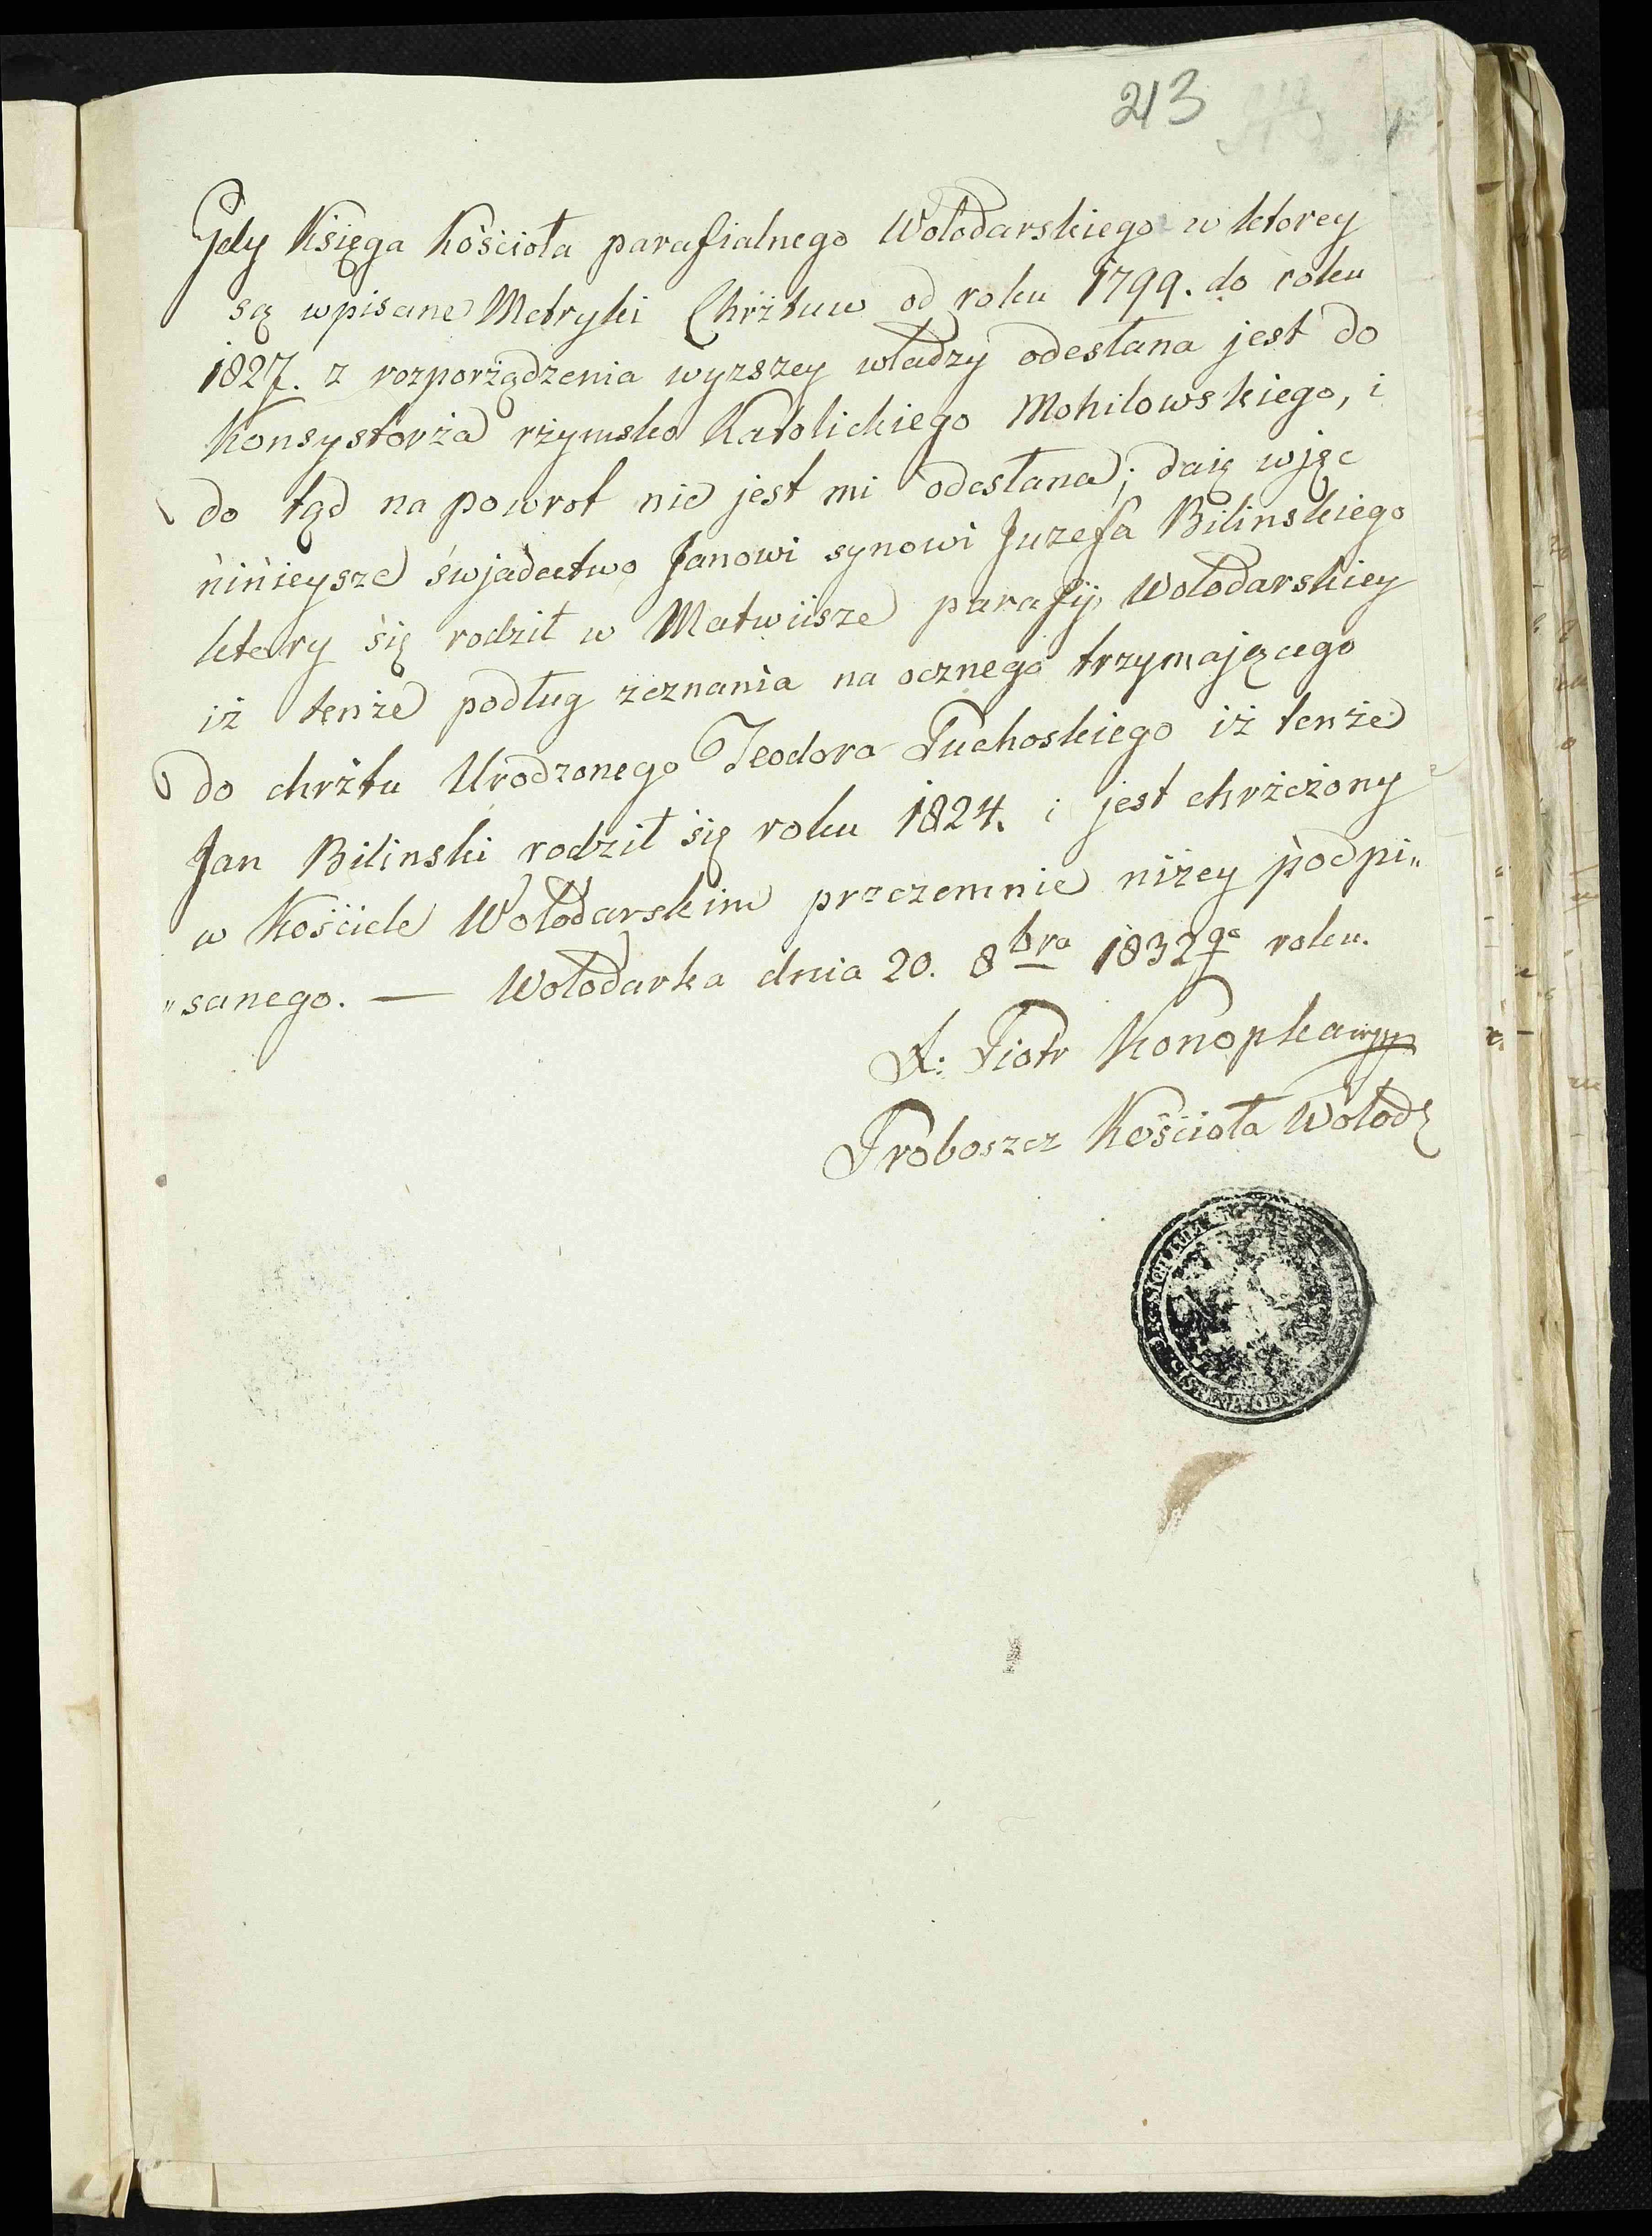 213
Gdy Księga Kościoła parafialnego Wołodarskiego w ktorey
są wpisane Metryki Chrżtuw od roku 1799. do roku
1827. z rozporżądzenia wyzszey władzy odesłana jest do
Konsystorża rżymsko Katolickiego Mohilowskiego, i
do tąd na powrot nie jest mi odesłana; daię wjęc
ninieysze świadectwo Janowi synowi Juzefa Bilinskiego
ktory się rodził w Matwiisze parafij Wołodarskiey
iż tenże podług zeznania na ocznego trzymającego
do chrżtu Urodzonego Teodora Puchoskiego iż tenże
Jan Bilinski rodził się roku 1824. i jest chrżczony
w Kościele Wołodarskim przezemnie niżey podpi„
„sanego. — Wołodarka dnia 20. 8bra 1832go roku.
X: Piotr Konopka mpp
Proboszcz Kościoła Wołod
SIGILLUM